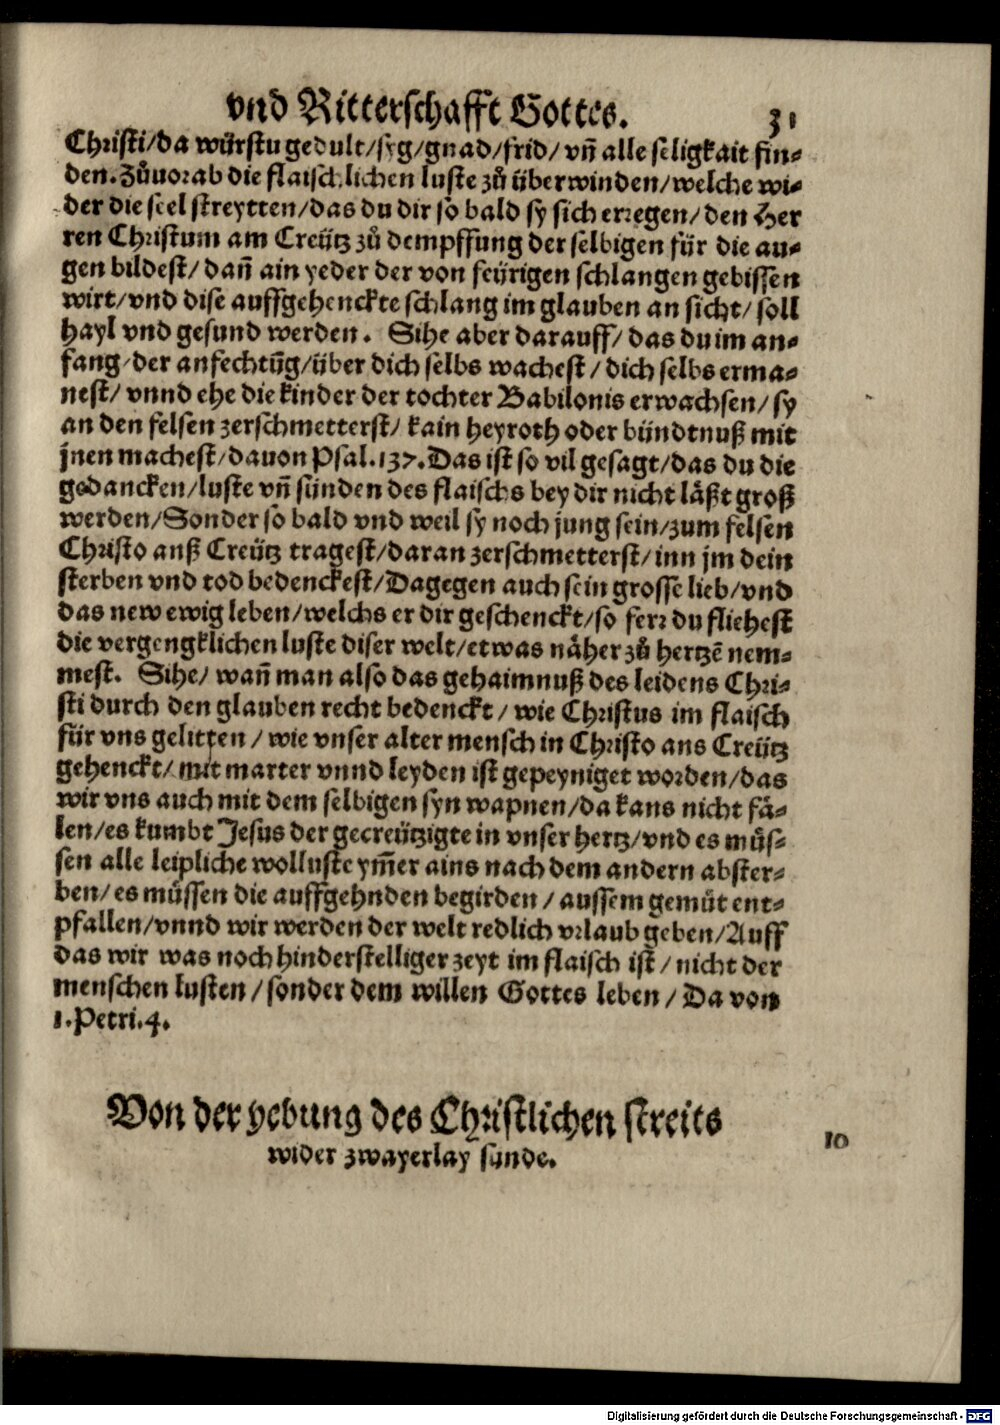 vnd Ritterschafft Gottes. 31
Christi/da würstu gedult/syg/gnad/frid/ vñ alle seligkait fin-
den. Zůuorab die flaischlichen luste zů überwinden/welche wi-
der die seel streytten/das du dir so bald sy sich erregen/den Her
ren Christum am Creütz zů dempffung der selbigen für die au-
gen bildest/ dañ ain yeder der von feürigen schlangen gebissen
wirt/vnd dise auffgehenckte schlang im glauben an sicht/ soll
hayl vnd gesund werden. Sihe aber darauff/ das du im an-
fang/der anfechtũg/über dich selbs wachest / dich selbs erma-
nest/ vnnd ehe die kinder der tochter Babilonis erwachsen/ sy
an den felsen zerschmetterst/ kain heyroth oder bündtnuß mit
jnen machest/dauon Psal.137.Das ist so vil gesagt/das du die
gedancken/luste vñ sünden des flaischs bey dir nicht läßt groß
werden/Sonder so bald vnd weil sy noch jung sein/zum felsen
Christo anß Creütz tragest/daran zerschmetterst/inn jm dein
sterben vnd tod bedenckest/Dagegen auch sein grosse lieb/vnd
das new ewig leben/welchs er dir geschenckt/so ferr du fliehest
die vergengklichen luste diser welt/etwas näher zů hertzẽ nem-
mest. Sihe/ wañ man also das gehaimnuß des leidens Chri-
sti durch den glauben recht bedenckt/ wie Christus im flaisch
für vns gelitten / wie vnser alter mensch in Christo ans Creütz
gehenckt/ mit marter vnnd leyden ist gepeyniget worden/das
wir vns auch mit dem selbigen syn wapnen/da kans nicht fä-
len/es kumbt Jesus der gecreützigte in vnser hertz/vnd es müs-
sen alle leipliche wolluste ym̃er ains nach dem andern abster-
ben/ es müssen die auffgehnden begirden / aussem gemüt ent-
pfallen/vnnd wir werden der welt redlich vrlaub geben/Auff
das wir was noch hinderstelliger zeyt im flaisch ist / nicht der
menschen lusten / sonder dem willen Gottes leben / Da von
1.Petri.4.
Von der yebung des Christlichen streits
wider zwayerlay sünde.
10
Digitalisierung gefördert durch die Deutsche Forschungsgemeinschaft - DFG